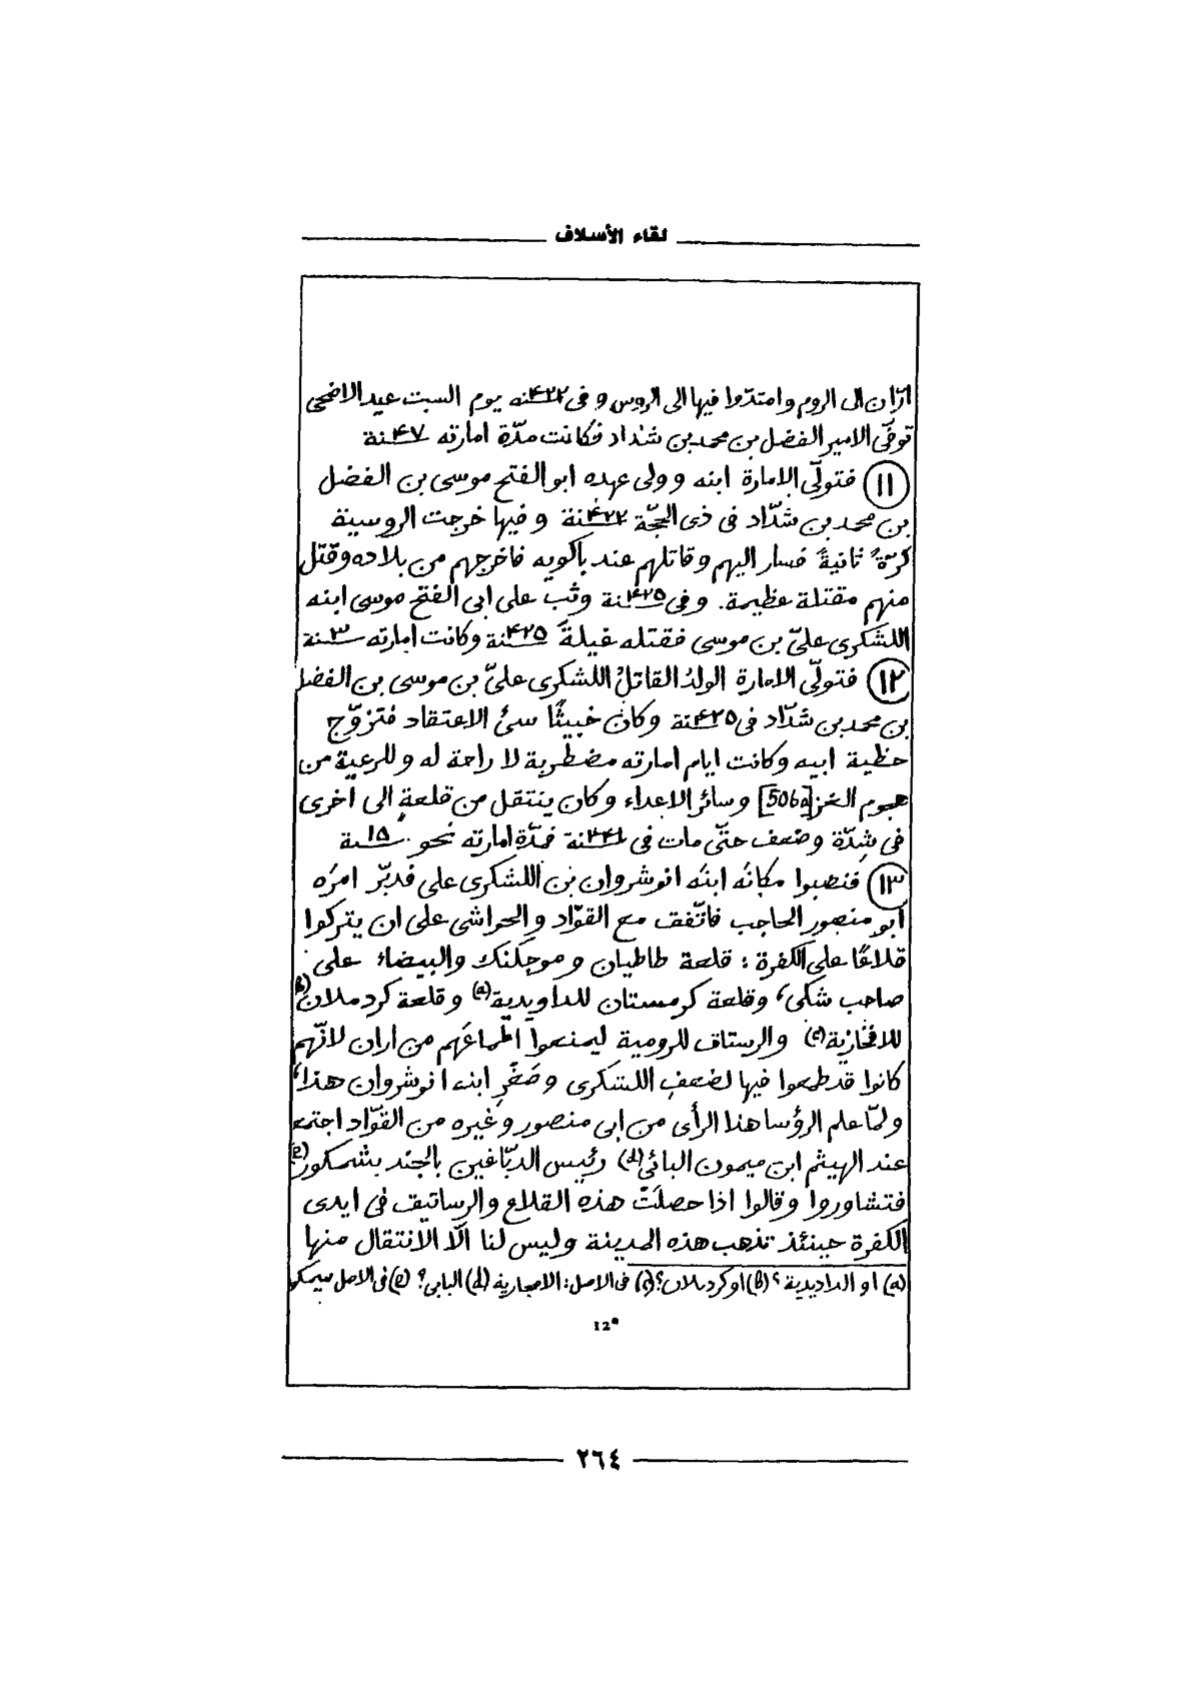 لقاء الأسلاف
ارّان الى الروم وامتدّوا فيها الى الروس وفى ۴۲۲سنه يوم السبت عيد الاضحى
توفّى الامير الفضل بن محمد بن شدّاد فكانت مدّة امارته ۴۷سنة
(۱۱) فتولّى الامارة ابنه وولى عهده ابو الفتح موسى بن الفضل
بن محمد بن شدّاد فى ذى الحجّة ۴۲۲سنة وفيها خرجت الروسية
كرّةً ثانيةً فسار اليهم وقاتلهم عند باكويه فاخرجهم من بلاده وقتل
منهم مقتلة عظيمة. وفى ۴۲۵سنة وثب على ابى الفتح موسى ابنه
اللشكرى علىّ بن موسى فقتله غيلةً ۴۲۵سنة وكانت امارته ۳سنة
(۱۲) فتولّى الامارة الولدُ القاتلُ اللشكرى علىّ بن موسى بن الفضل
بن محمد بن شدّاد فى ۴۲۵سنة وكان خبيثًا سئ الاعتقاد فتزوّج
حظية ابيه وكانت ايام امارته مضطربة لا راحة له وللرعية من
هجوم الغز [506a] وسائر الاعداء وكان ينتقل من قلعةٍ الى اخرى
فى شِدّة وضعف حتّى مات فى ۴۴۱سنة فمدّة امارته نحو ۱۵سنة
(۱۳) فنصبوا مكانَه ابنَه انوشروان بن اللشكرى على فدبّر امرَه
ابو منصور الحاجب فاتّفق مع القوّاد والحواشى على ان يتركوا
قلاعًا على الكفرة : قلعة طاطيان وموجَلنك والبيضاء على
صاحب شكى، وقلعة كرمستان للداويدية(a) وقلعة كردملان(b)
للافخازية(c) والرستاق للرومية ليمنعوا اطماعَهم من اران لانّهم
كانوا قد طمعوا فيها لضعفِ اللشكرى وصَغَرِ ابنه انوشروان هذا،
ولمّا علم الرؤسا هذا الرأى من ابى منصور وغيره من القوّاد اجتمع
عند الهيثم ابن ميمون البائى(d) رئيس الدبّاغين بالجند بشمكور(e)
فتشاوروا وقالوا اذا حصلَتْ هذه القلاع والرساتيق فى ايدى
الكفرة حينئذ تذهب هذه المدينة وليس لنا الّا الانتقال منها
(a) او الداديدية ؟ (b) او كردملان؟ (c) فى الاصل: الامجارية (d) البابى؟ (e) فى الاصل
12*
٢٦٤